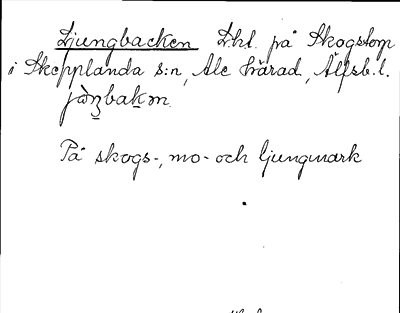 Ljungbacken Lht. på Skogstorp
i Skepplanda s:n, Ale härad, Älfsb. l.
På skogs-, mo- och ljungmark